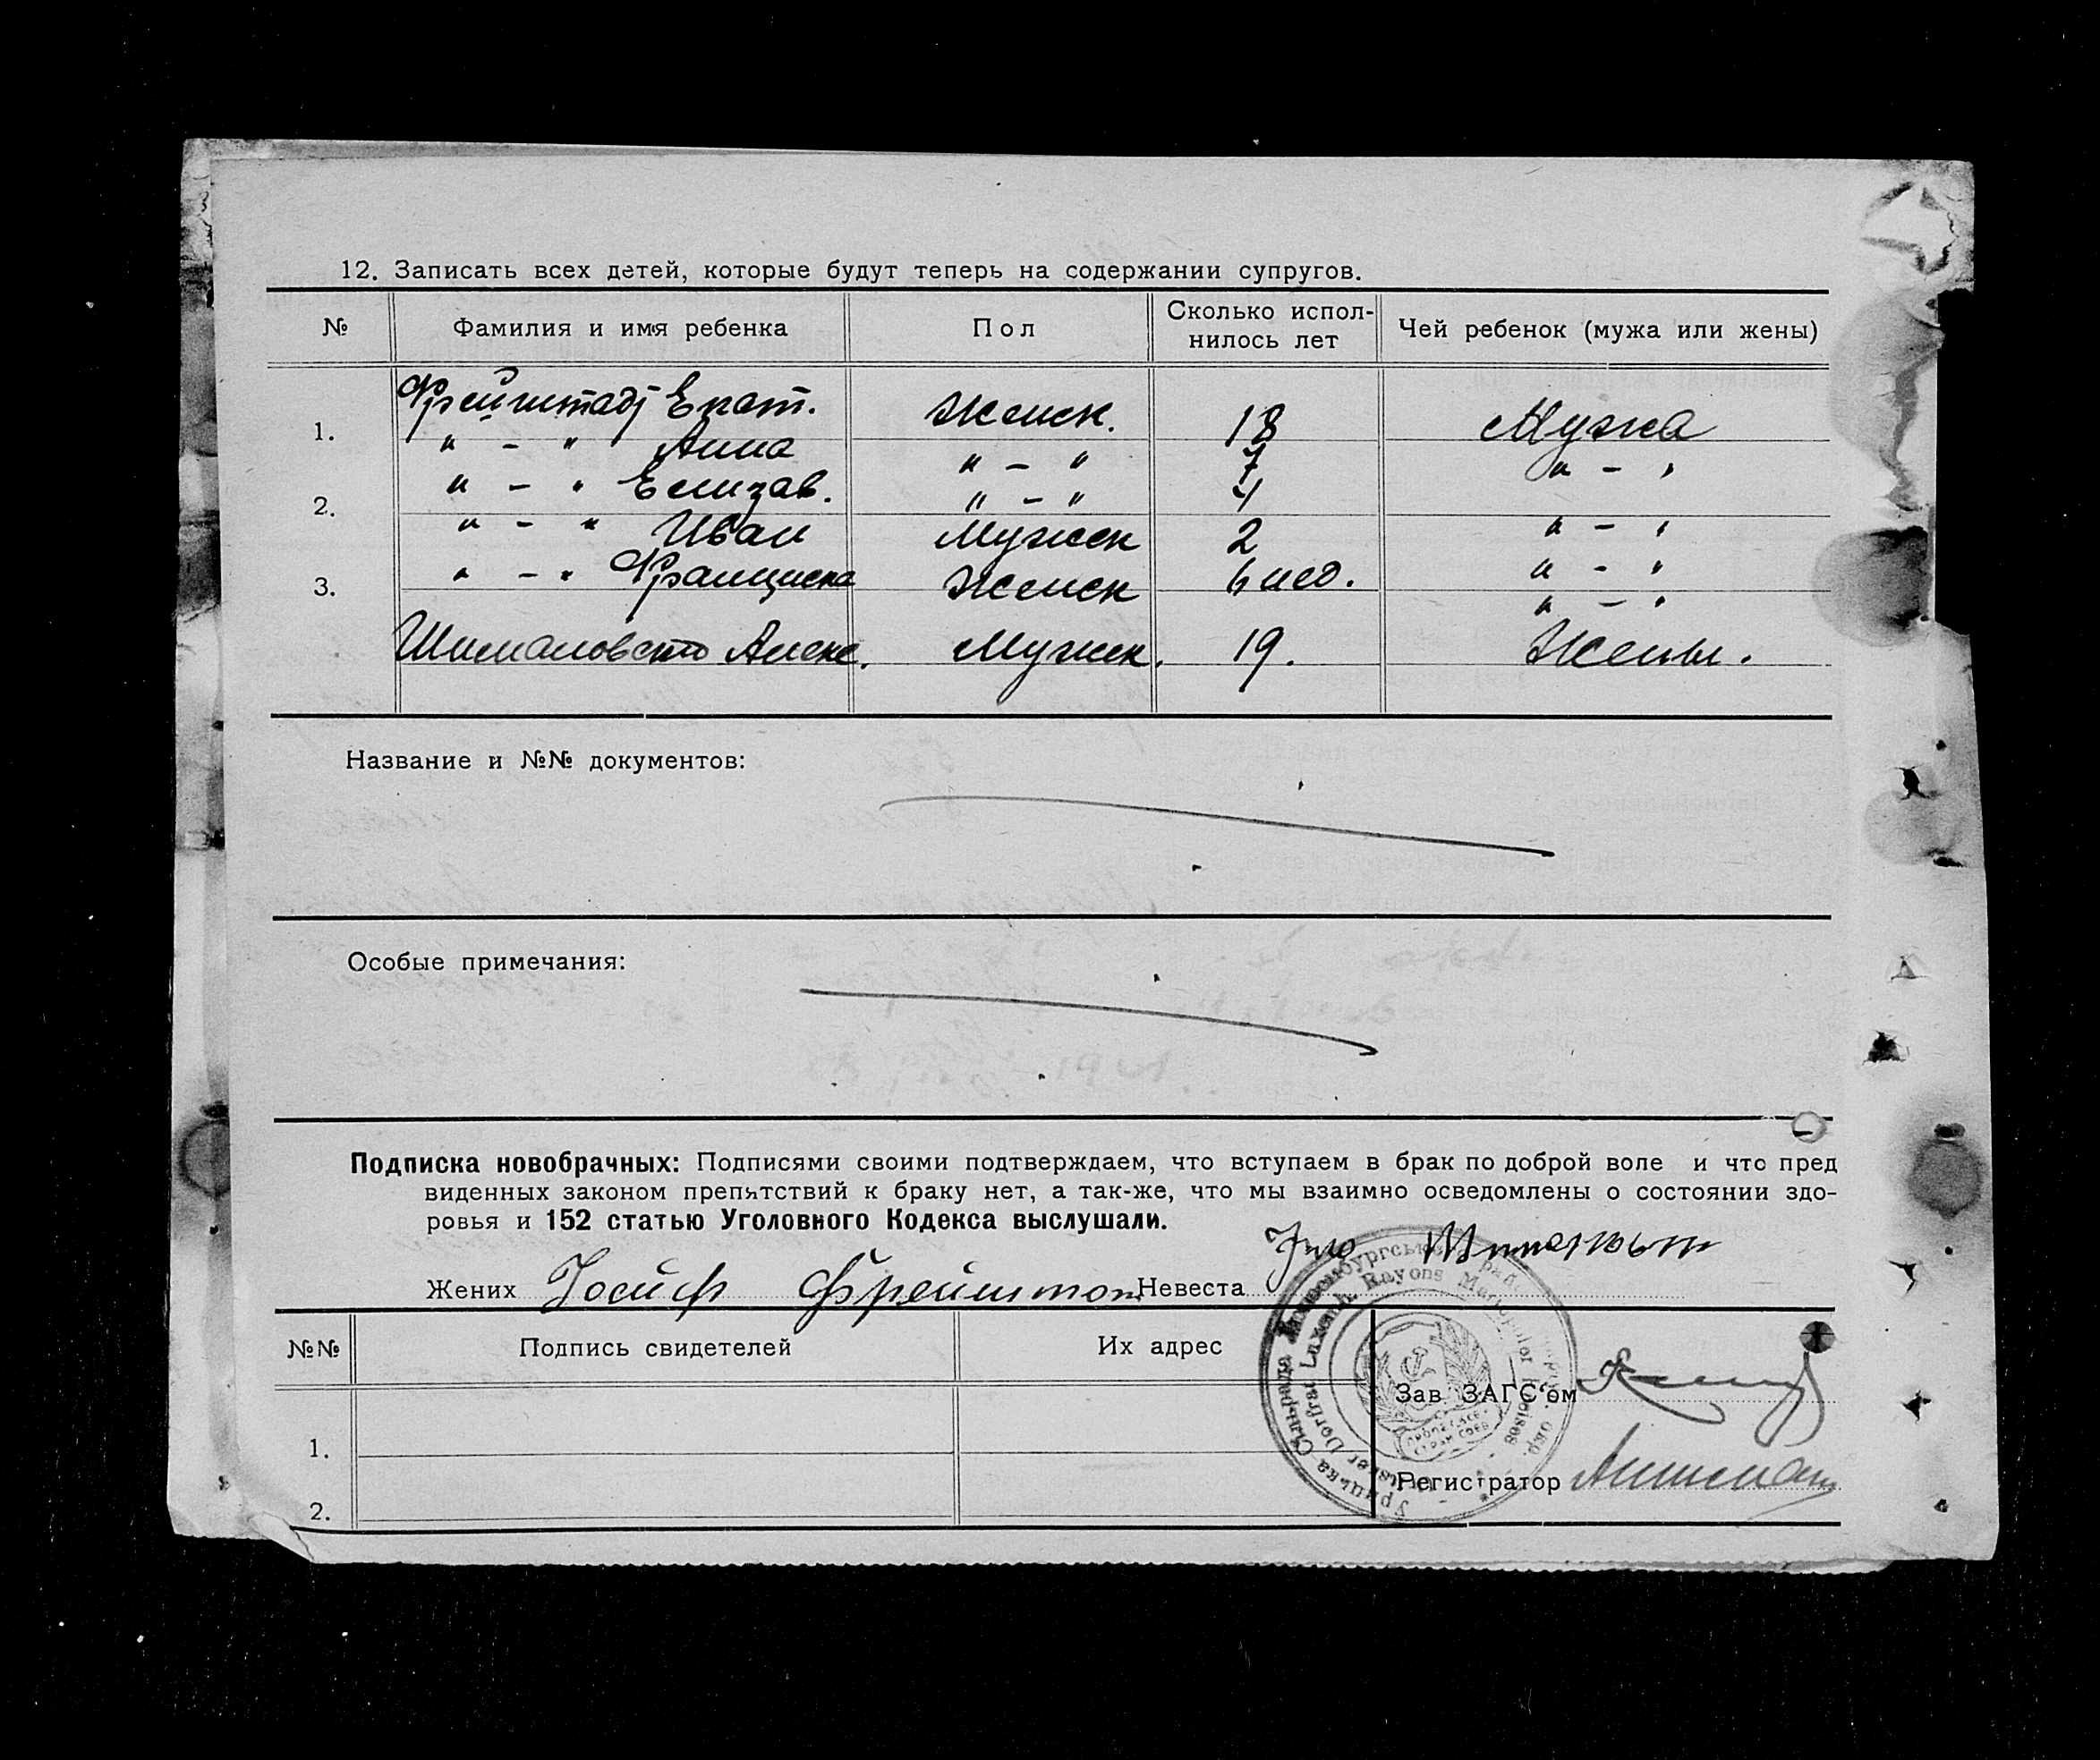 12. Записать всех детей, которые будут теперь на содержании супругов.
№ Фамилия и имя ребенка Пол Сколько испол-нилось лет Чей ребенок (мужа или жены)
1. Фрейштадт Екат. Женск. 18 Мужа
" - " Анна " - " 7 " - "
2. " - " Елизав. " - " 4 " - "
" - " Иван Мужск 2 " - "
3. " - " Франциска Женск 6 нед. " - "
Алекс. Мужск. 19. Жены.
Название и №№ документов:
Особые примечания:
Подписка новобрачных: Подписями своими подтверждаем, что вступаем в брак по доброй воле и что пред
виденных законом препятствий к браку нет, а так-же, что мы взаимно осведомлены о состоянии здо-
ровья и 152 статью Уголовного Кодекса выслушали.
Жених Иосиф Фрейштат Невеста
№№ Подпись свидетелей Их адрес
Зав ЗАГС'ом
1.
Регистратор
2.
Rayons Mariupoler Kreises